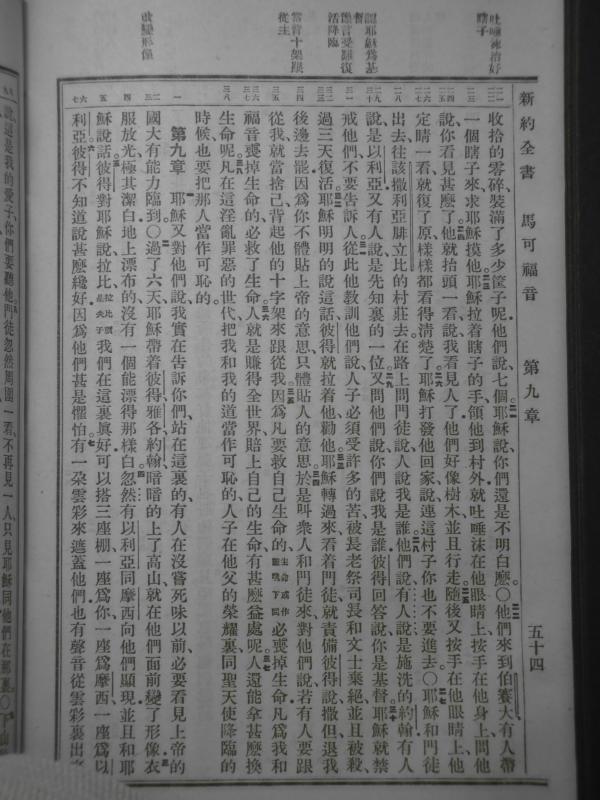 新約全書 馬可福音 第九章 五十四
吐唾沫治好
瞎子
認耶穌爲基
督
豫言受難復
活降臨
當背十架跟
從主
改變形像
收拾的零碎裝滿了多少筐子呢他們說七個耶穌說你們還是不明白麽○他們來到伯賽大有人帶
一個瞎子來求耶穌摸他耶穌拉着瞎子的手領他到村外就吐唾沫在他眼睛上按手在他身上問他
說你看見甚麽了他就抬頭一看說我看見人了他們好像樹木並且行走隨後又按手在他眼睛上他
定睛一看就復了原樣樣都看得清楚了耶穌打發他回家說連這村子你也不要進去○耶穌和門徒
出去往該撒利亞腓立比的村莊去在路上問門徒說人說我是誰他們說有人說是施洗的約翰有人
說是以利亞又有人說是先知裏的一位又問他們說你們說我是誰彼得回答說你是基督耶穌就禁
戒他們不要告訴人從此他教訓他們說人子必須受許多的苦被長老祭司長和文士棄絶並且被殺
過三天復活耶穌明明的說這話彼得就拉着他勸他耶穌轉過來看着門徒就責備彼得說撒但退我
後邊去罷因爲你不體貼上帝的意思只體貼人的意思於是叫衆人和門徒來對他們說若有人要跟
從我就當捨己背起他的十字架來跟從我因爲凡要救自己生命的生命或作靈魂下同必喪掉生命凡爲我和
福音喪掉生命的必救了生命人就是賺得全世界賠上自己的生命有甚麽益處呢人還能拿甚麽換
生命呢凡在這淫亂罪惡的世代把我和我的道當作可恥的人子在他父的榮耀裏同聖天使降臨的
時候也要把那人當作可恥的
第九章 耶穌又對他們說我實在告訴你們站在這裏的有人在沒嘗死味以前必要看見上帝的
國大有能力臨到○過了六天耶穌帶着彼得雅各約翰暗暗的上了高山就在他們面前變了形像衣
服放光極其潔白地上漂布的沒有一個能漂得那樣白忽然有以利亞同摩西向他們顯現並且和耶
穌說話彼得對耶穌說拉比拉比就是夫子我們在這裏眞好可以搭三座棚一座爲你一座爲摩西一座爲以
利亞彼得不知道說甚麽纔好因爲他們甚是懼怕有一朵雲彩來遮蓋他們也有聲音從雲彩裏出來
說這是我的愛子你們要聽他門徒忽然周圍一看不再見一人只見耶穌同他們在那裏○